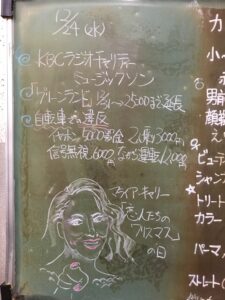 12/24(水)
◎KBCラジオチャリティー
ミュージックソン
◎「グリーンランド」12/31〜2500まで延長
◎自転車さん違反
イヤホン5000罰金 2人乗り3000円
信号無視6000 ながら運転12000円
マライア・キャリー
「恋人たちの
クリスマス」
の日
カ
小
男前
顔
ビューテ
シャン
トリート
カラー
パーマ
ストレート